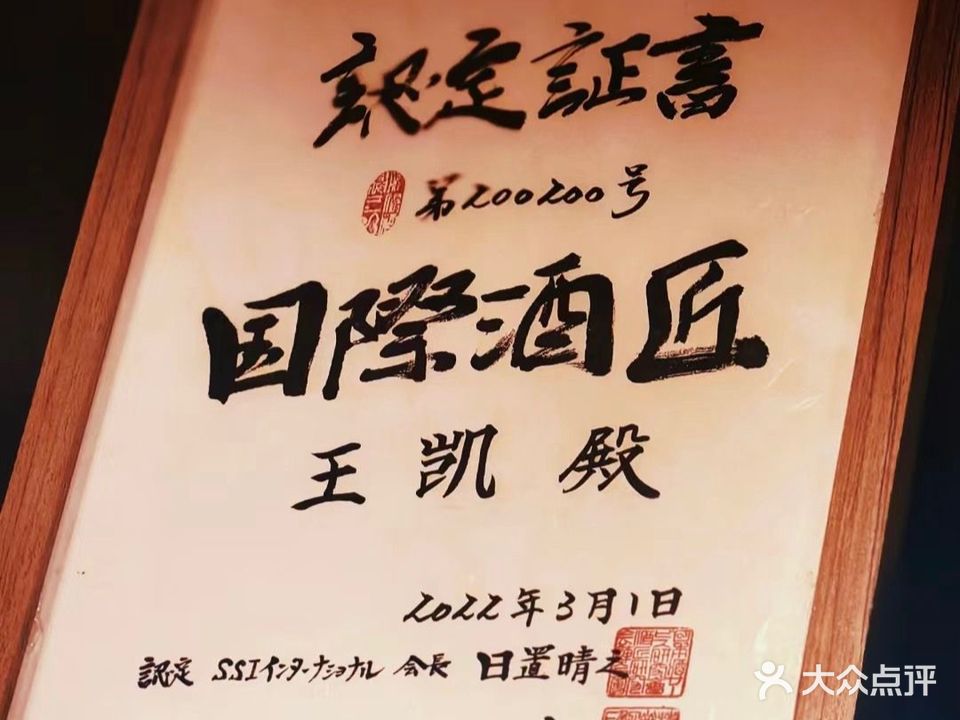 認定証書
第200200号
国際酒匠
王凯殿
2022年3月1日
認定 SSIインターナショナル 会長 日置晴之
大众点评